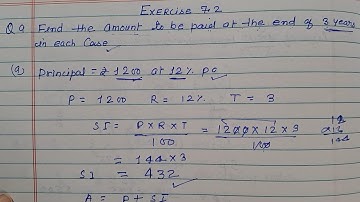 Exercise 7.2
Q.9 Find the amount to be paid at the end of 3 years
in each Case
(a) Principal = ₹ 1200 at 12% pa
P = 1200 R = 12% T = 3
SI = P × R × T / 100 = 1200 × 12 × 3 / 100
= 144 × 3
SI = 432
A = P + SI